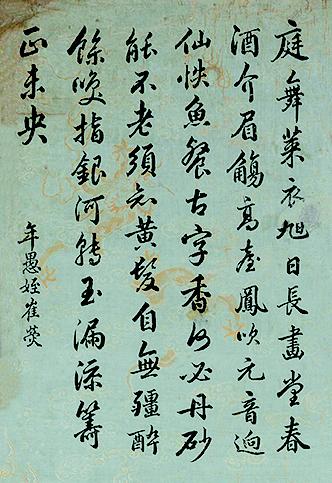 庭舞萊衣旭日長畫堂春
酒介眉觴高臺鳳吹元音迥
仙帙魚餐古字香何必丹砂
能不老須知黃髮自無疆醉
餘笑指銀河轉玉漏添籌
正未央
年愚姪崔熒